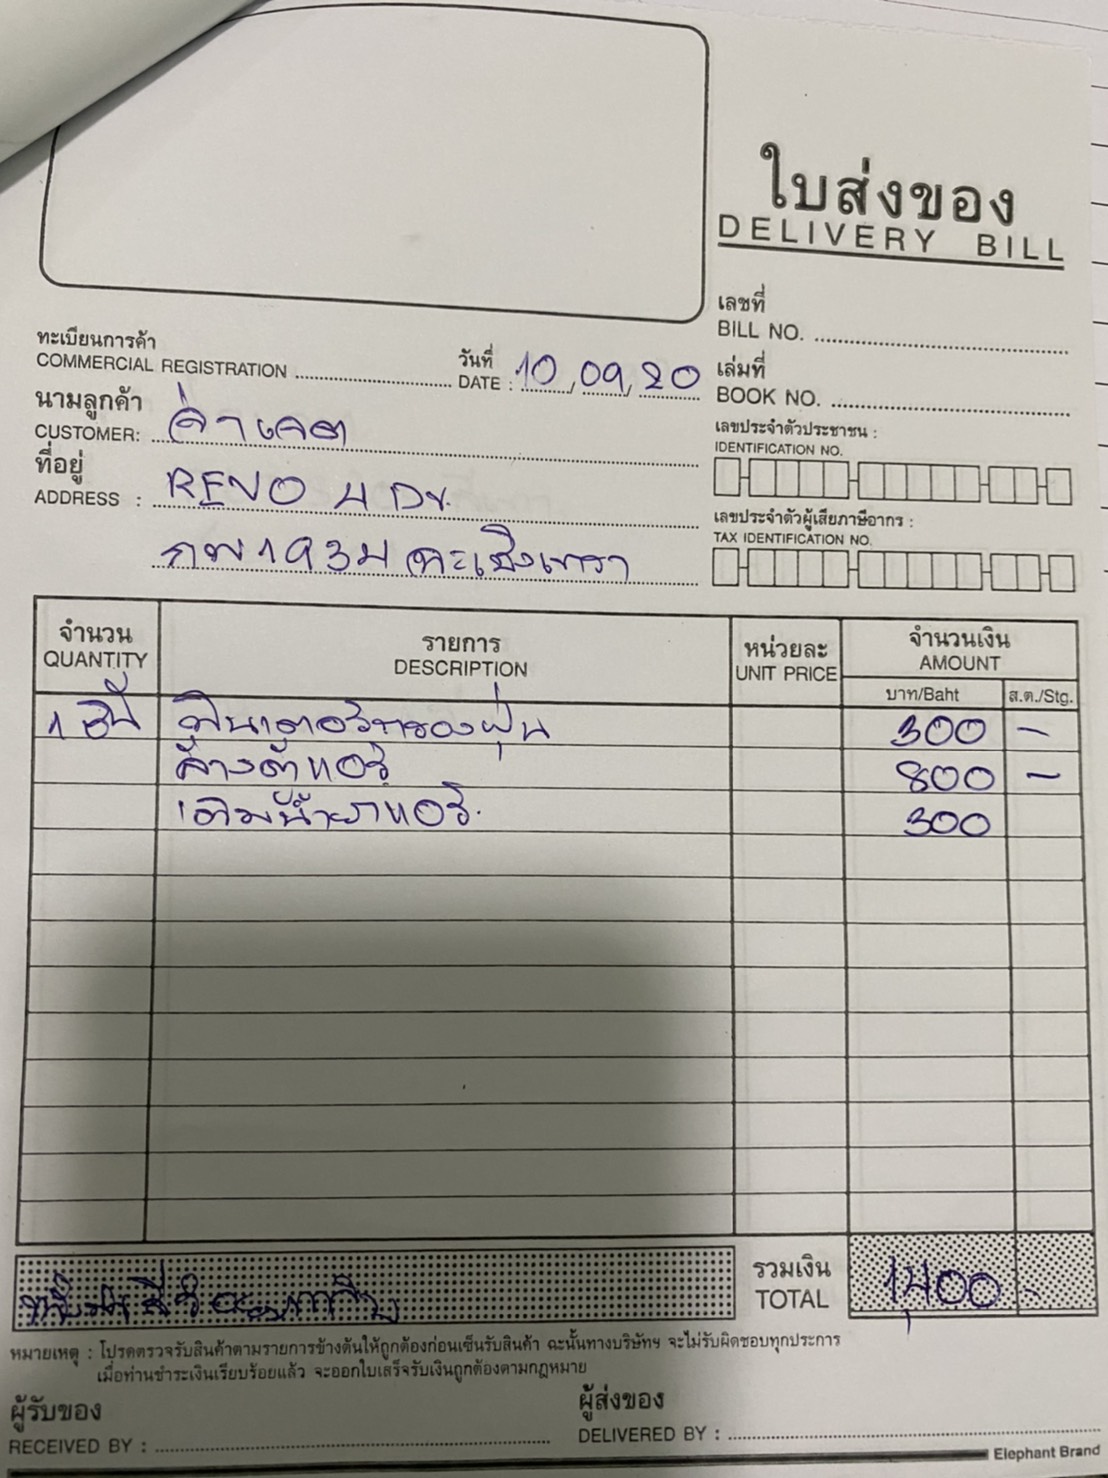 ใบส่งของ
DELIVERY BILL
เลขที่
BILL NO.
ทะเบียนการค้า
COMMERCIAL REGISTRATION
วันที่
DATE : 10/09/20
เล่มที่
BOOK NO.
นามลูกค้า
CUSTOMER: จ่าเจต
เลขประจำตัวประชาชน :
IDENTIFICATION NO.
ที่อยู่
ADDRESS : RENO 4 Dr.
เลขประจำตัวผู้เสียภาษีอากร :
TAX IDENTIFICATION NO.
กพ1934 ฉะเชิงเทรา
จำนวน รายการ หน่วยละ จำนวนเงิน
QUANTITY DESCRIPTION UNIT PRICE AMOUNT
บาท/Baht ส.ต./Stg.
1 ชิ้น ฟินเตอร์กรองฝุ่น 300 -
ล้างตู้แอร์ 800 -
เติมน้ำยาแอร์. 300
รวมเงิน
TOTAL 1,400 -
หมายเหตุ : โปรดตรวจรับสินค้าตามรายการข้างต้นให้ถูกต้องก่อนเซ็นรับสินค้า ฉะนั้นทางบริษัทฯ จะไม่รับผิดชอบทุกประการ
เมื่อท่านชำระเงินเรียบร้อยแล้ว จะออกใบเสร็จรับเงินถูกต้องตามกฎหมาย
ผู้รับของ
RECEIVED BY :
ผู้ส่งของ
DELIVERED BY :
Elephant Brand